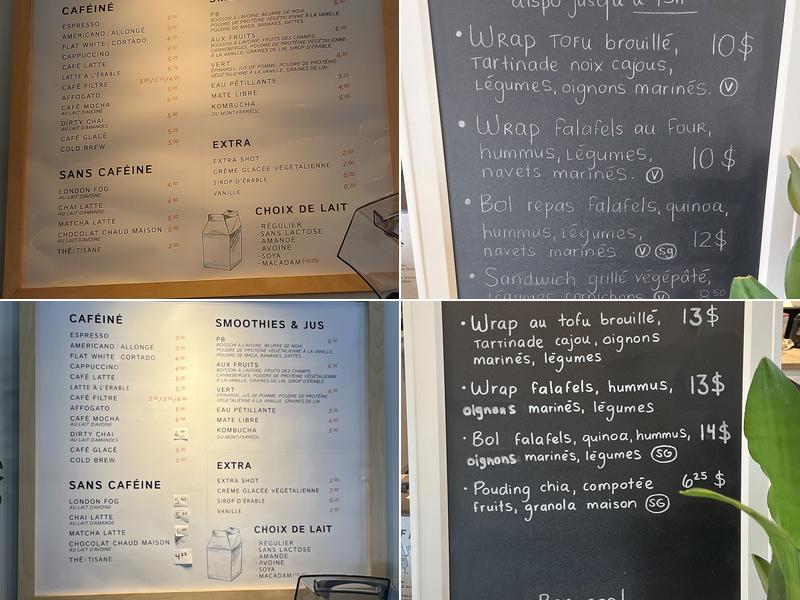 CAFÉINÉ
ESPRESSO 3.00
AMERICANO / ALLONGÉ
FLAT WHITE / CORTADO
CAPPUCCINO
CAFÉ LATTE
LATTE À L'ÉRABLE
CAFÉ FILTRE
AFFOGATO
CAFÉ MOCHA 6.00
AU LAIT D'AVOINE
DIRTY CHAI
AU LAIT D'AMANDES
CAFÉ GLACÉ 5.25
COLD BREW 5.00
SANS CAFÉINE
LONDON FOG 4.50
AU LAIT D'AVOINE
CHAI LATTE 4.50
AU LAIT D'AMANDE
MATCHA LATTE 5.50
CHOCOLAT CHAUD MAISON 5.00
AU LAIT D'AVOINE
THÉ/TISANE 3.50
PB
BOISSON À L'AVOINE, BEURRE DE NOIX,
POUDRE DE PROTÉINE VÉGÉTALIENNE À LA VANILLE,
POUDRE DE MACA, BANANES, DATTES.
AUX FRUITS 6.50
BOISSON À L'AVOINE, FRUITS DES CHAMPS,
CANNEBERGES, POUDRE DE PROTÉINE VÉGÉTALIENNE
À LA VANILLE, GRAINES DE LIN, SIROP D'ÉRABLE.
VERT 6.50
ÉPINARDS, JUS DE POMME, POUDRE DE PROTÉINE
VÉGÉTALIENNE À LA VANILLE, GRAINES DE LIN
EAU PÉTILLANTE 3.25
MATE LIBRE 4.50
KOMBUCHA 5.00
DU MONT-FERRÉOL
EXTRA
EXTRA SHOT 2.00
CRÈME GLACÉE VÉGÉTALIENNE 2.00
SIROP D'ÉRABLE 0.25
VANILLE 0.50
CHOIX DE LAIT
- RÉGULIER
- SANS LACTOSE
- AMANDE
- AVOINE
- SOYA
- MACADAM (+0.25)
dispo jusqu'à 15h
• Wrap Tofu brouillé, 10$
Tartinade noix cajous,
Légumes, oignons marinés. V
• Wrap falafels au four,
hummus, Légumes, 10$
navets marinés. V
• Bol repas falafels, quinoa,
hummus, Légumes, 12$
navets marinés V Sg
• Sandwich grillé végépâté,
légumes, cornichons V 8.50
CAFÉINÉ
ESPRESSO 3.00
AMERICANO / ALLONGÉ
FLAT WHITE / CORTADO
CAPPUCCINO
CAFÉ LATTE
LATTE À L'ÉRABLE
CAFÉ FILTRE
AFFOGATO
CAFÉ MOCHA 6.00
AU LAIT D'AVOINE
DIRTY CHAI
AU LAIT D'AMANDES
CAFÉ GLACÉ 5.25
COLD BREW 5.00
SANS CAFÉINE
LONDON FOG 5.50
AU LAIT D'AVOINE
CHAI LATTE 5.50
AU LAIT D'AMANDE
MATCHA LATTE
CHOCOLAT CHAUD MAISON
AU LAIT D'AVOINE
THÉ/TISANE 4.25
SMOOTHIES & JUS
PB 6.50
BOISSON À L'AVOINE, BEURRE DE NOIX,
POUDRE DE PROTÉINE VÉGÉTALIENNE À LA VANILLE,
POUDRE DE MACA, BANANES, DATTES.
AUX FRUITS 6.50
BOISSON À L'AVOINE, FRUITS DES CHAMPS,
CANNEBERGES, POUDRE DE PROTÉINE VÉGÉTALIENNE
À LA VANILLE, GRAINES DE LIN, SIROP D'ÉRABLE.
VERT 6.50
ÉPINARDS, JUS DE POMME, POUDRE DE PROTÉINE
VÉGÉTALIENNE À LA VANILLE, GRAINES DE LIN
EAU PÉTILLANTE 3.25
MATE LIBRE 4.50
KOMBUCHA 5.00
DU MONT-FERRÉOL
EXTRA
EXTRA SHOT 2.00
CRÈME GLACÉE VÉGÉTALIENNE 2.00
SIROP D'ÉRABLE 0.25
VANILLE 0.50
CHOIX DE LAIT
- RÉGULIER
- SANS LACTOSE
- AMANDE
- AVOINE
- SOYA
- MACADAM (+0.25)
• Wrap au tofu brouillé, 13$
Tartinade cajou, oignons
marinés, légumes
• Wrap falafels, hummus, 13$
oignons marinés, légumes
• Bol falafels, quinoa, hummus, 14$
oignons marinés, légumes SG
• Pouding chia, compotée 6 25 $
fruits, granola maison SG